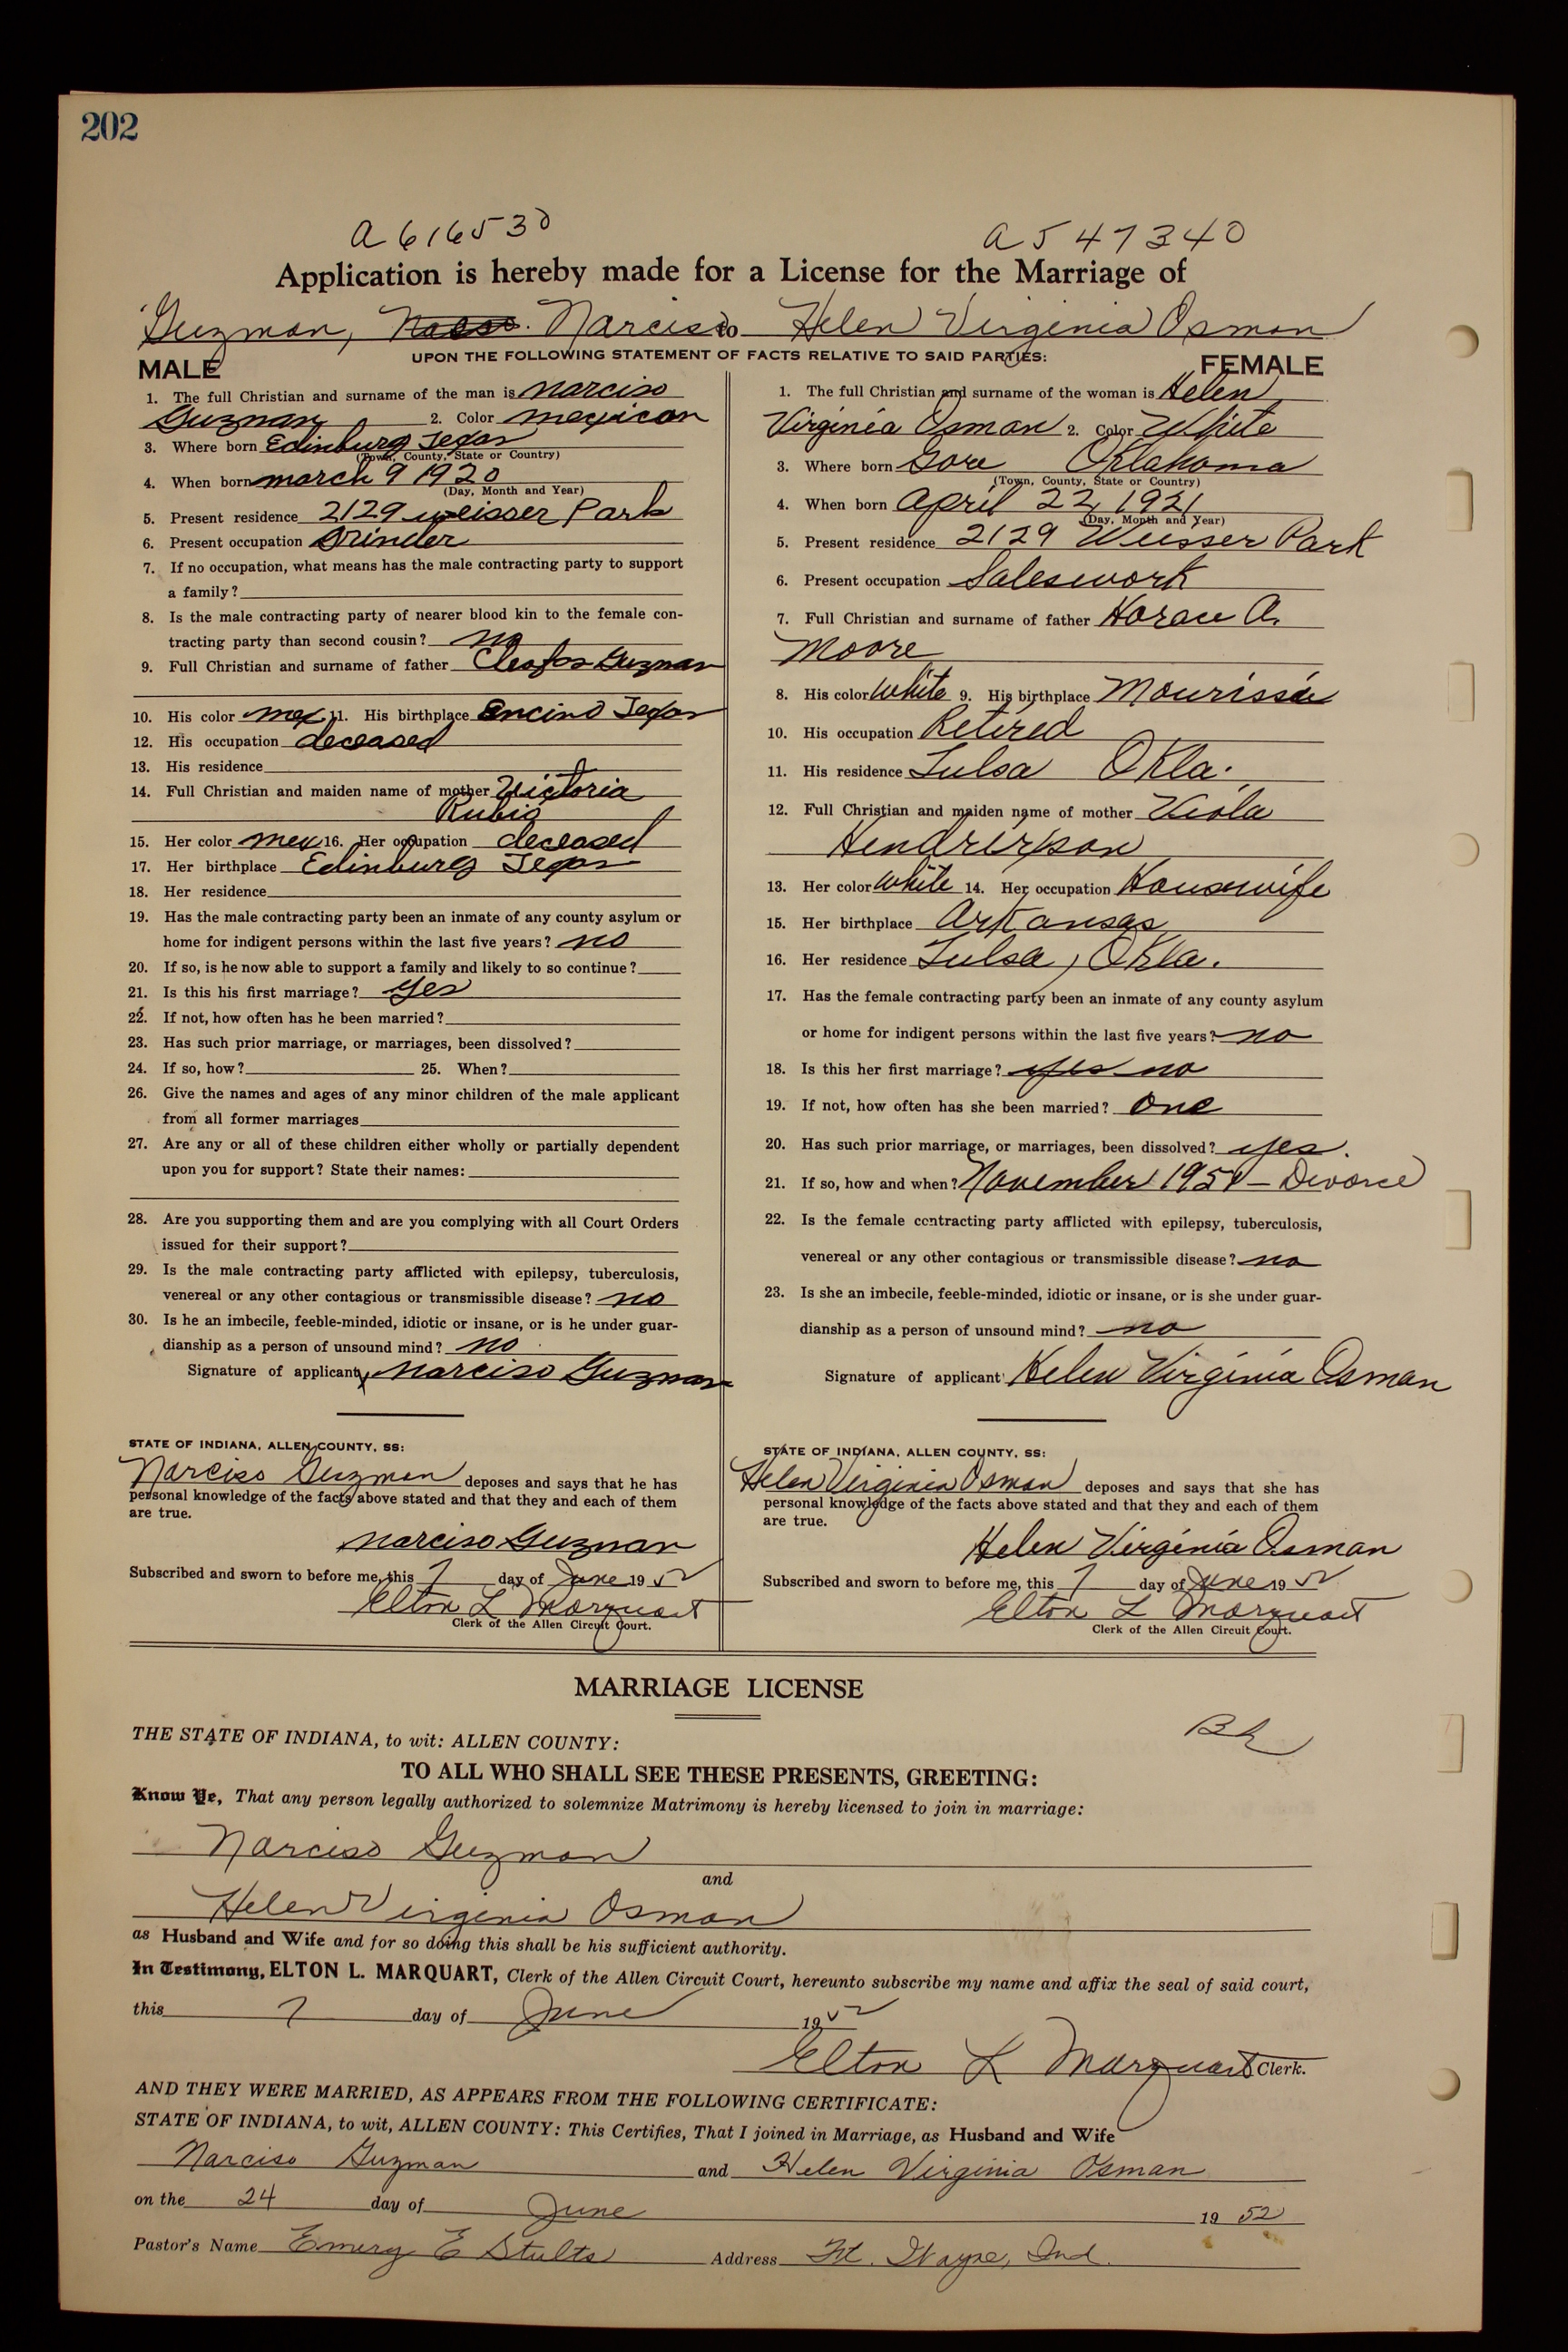 202
A616530 A547340
Application is hereby made for a License for the Marriage of
Guzman, Narciso to Helen Virginia Osman
UPON THE FOLLOWING STATEMENT OF FACTS RELATIVE TO SAID PARTIES:
MALE
1. The full Christian and surname of the man is Narciso
Guzman 2. Color Mexican
3. Where born Edinburg Texas
(Town, County, State or Country)
4. When born March 9 1920
(Day, Month and Year)
5. Present residence 2129 Weisser Park
6. Present occupation Grinder
7. If no occupation, what means has the male contracting party to support
a family?
8. Is the male contracting party of nearer blood kin to the female con-
tracting party than second cousin? no
9. Full Christian and surname of father Cleofas Guzman
10. His color Mex 11. His birthplace Encino Texas
12. His occupation deceased
13. His residence
14. Full Christian and maiden name of mother Victoria
Rubio
15. Her color Mex 16. Her occupation deceased
17. Her birthplace Edinburg Texas
18. Her residence
19. Has the male contracting party been an inmate of any county asylum or
home for indigent persons within the last five years? no
20. If so, is he now able to support a family and likely to so continue?
21. Is this his first marriage? yes
22. If not, how often has he been married?
23. Has such prior marriage, or marriages, been dissolved?
24. If so, how? 25. When?
26. Give the names and ages of any minor children of the male applicant
from all former marriages
27. Are any or all of these children either wholly or partially dependent
upon you for support? State their names:
28. Are you supporting them and are you complying with all Court Orders
issued for their support?
29. Is the male contracting party afflicted with epilepsy, tuberculosis,
venereal or any other contagious or transmissible disease? no
30. Is he an imbecile, feeble-minded, idiotic or insane, or is he under guar-
dianship as a person of unsound mind? no
Signature of applicant x Narciso Guzman
STATE OF INDIANA, ALLEN COUNTY, SS:
Narciso Guzman deposes and says that he has
personal knowledge of the facts above stated and that they and each of them
are true.
Narciso Guzman
Subscribed and sworn to before me, this 7 day of June 1952
Elton L Marquart
Clerk of the Allen Circuit Court.
FEMALE
1. The full Christian and surname of the woman is Helen
Virginia Osman 2. Color White
3. Where born Gore Oklahoma
(Town, County, State or Country)
4. When born April 22, 1921
(Day, Month and Year)
5. Present residence 2129 Weisser Park
6. Present occupation Saleswork
7. Full Christian and surname of father Horace A.
Moore
8. His color White 9. His birthplace
10. His occupation Retired
11. His residence Tulsa Okla.
12. Full Christian and maiden name of mother Viola
13. Her color White 14. Her occupation Housewife
15. Her birthplace Arkansas
16. Her residence Tulsa, Okla.
17. Has the female contracting party been an inmate of any county asylum
or home for indigent persons within the last five years? no
18. Is this her first marriage? yes no
19. If not, how often has she been married? One
20. Has such prior marriage, or marriages, been dissolved? yes.
21. If so, how and when? November 1951 - Divorce
22. Is the female contracting party afflicted with epilepsy, tuberculosis,
venereal or any other contagious or transmissible disease? no
23. Is she an imbecile, feeble-minded, idiotic or insane, or is she under guar-
dianship as a person of unsound mind? no
Signature of applicant Helen Virginia Osman
STATE OF INDIANA, ALLEN COUNTY, SS:
Helen Virginia Osman deposes and says that she has
personal knowledge of the facts above stated and that they and each of them
are true.
Helen Virginia Osman
Subscribed and sworn to before me, this 7 day of June 1952
Elton L Marquart
Clerk of the Allen Circuit Court.
MARRIAGE LICENSE
THE STATE OF INDIANA, to wit: ALLEN COUNTY:
TO ALL WHO SHALL SEE THESE PRESENTS, GREETING:
Know Ye, That any person legally authorized to solemnize Matrimony is hereby licensed to join in marriage:
Narciso Guzman
and
Helen Virginia Osman
as Husband and Wife and for so doing this shall be his sufficient authority.
In Testimony, ELTON L. MARQUART, Clerk of the Allen Circuit Court, hereunto subscribe my name and affix the seal of said court,
this 7 day of June 1952
Elton L Marquart Clerk.
AND THEY WERE MARRIED, AS APPEARS FROM THE FOLLOWING CERTIFICATE:
STATE OF INDIANA, to wit, ALLEN COUNTY: This Certifies, That I joined in Marriage, as Husband and Wife
Narciso Guzman and Helen Virginia Osman
on the 24 day of June 1952
Pastor's Name Emery E Stults Address Ft. Wayne, Ind.